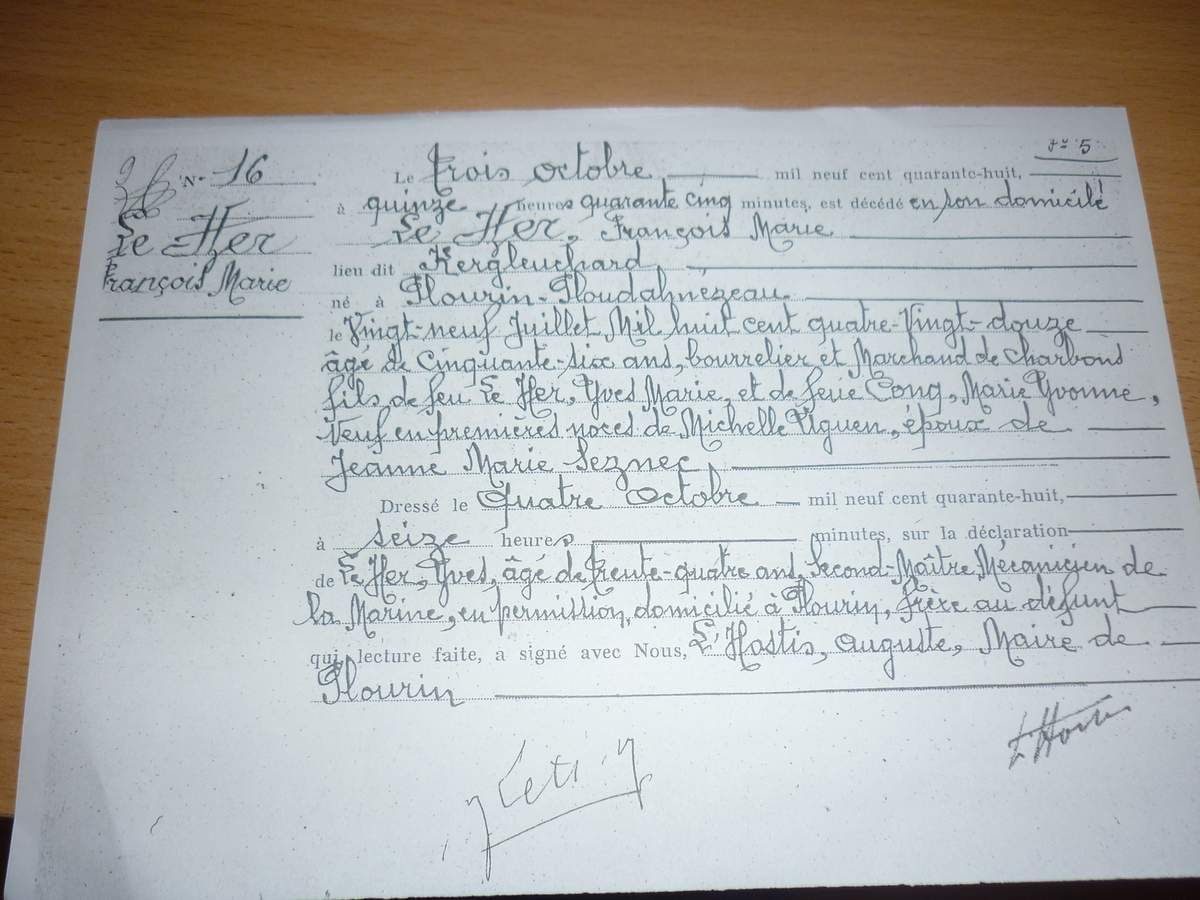 N° 16
Le Her
François Marie
f° 5
Le trois octobre, mil neuf cent quarante-huit,
à quinze heures quarante cinq minutes, est décédé en son domicile
Le Her, François Marie
lieu dit Kergleuchard,
né à Plourin-Ploudalmézeau.
le Vingt-neuf Juillet Mil huit cent quatre-Vingt-douze
âgé de Cinquante-six ans, bourrelier et Marchand de charbons
fils de feu Le Her, Yves Marie, et de feue Cong, Marie Yvonne,
Veuf en premières noces de Michelle Uguen, époux de
Jeanne Marie Seznec,
Dressé le Quatre Octobre mil neuf cent quarante-huit,
à seize heures minutes, sur la déclaration
de Le Her, Yves, âgé de trente-quatre ans, Second-Maître Mécanicien de
la Marine, en permission, domicilié à Plourin, frère au défunt
qui, lecture faite, a signé avec Nous, L'Hostis, Auguste, Maire de
Plourin